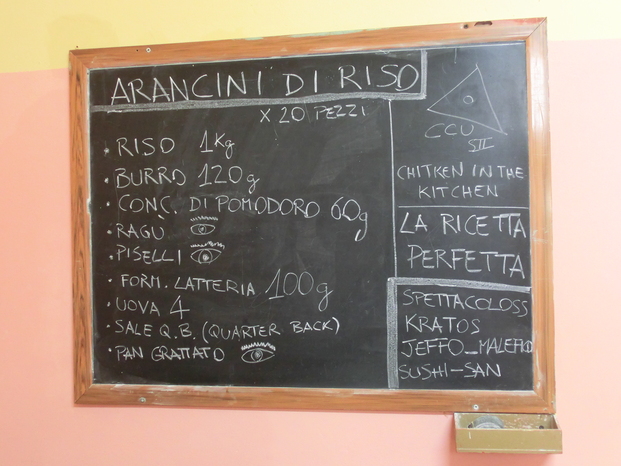 ARANCINI DI RISO
X 20 PEZZI
• RISO 1Kg
• BURRO 120g
• CONC. DI POMODORO 60g
• RAGÙ
• PISELLI
• FORM. LATTERIA 100g
• UOVA 4
• SALE Q.B. (QUARTER BACK)
• PAN GRATTATO
CCU
SII
CHITKEN IN THE
KITCHEN
LA RICETTA
PERFETTA
SPETTACOLOSS
KRATOS
JEFFO_MALEFICO
SUSHI-SAN